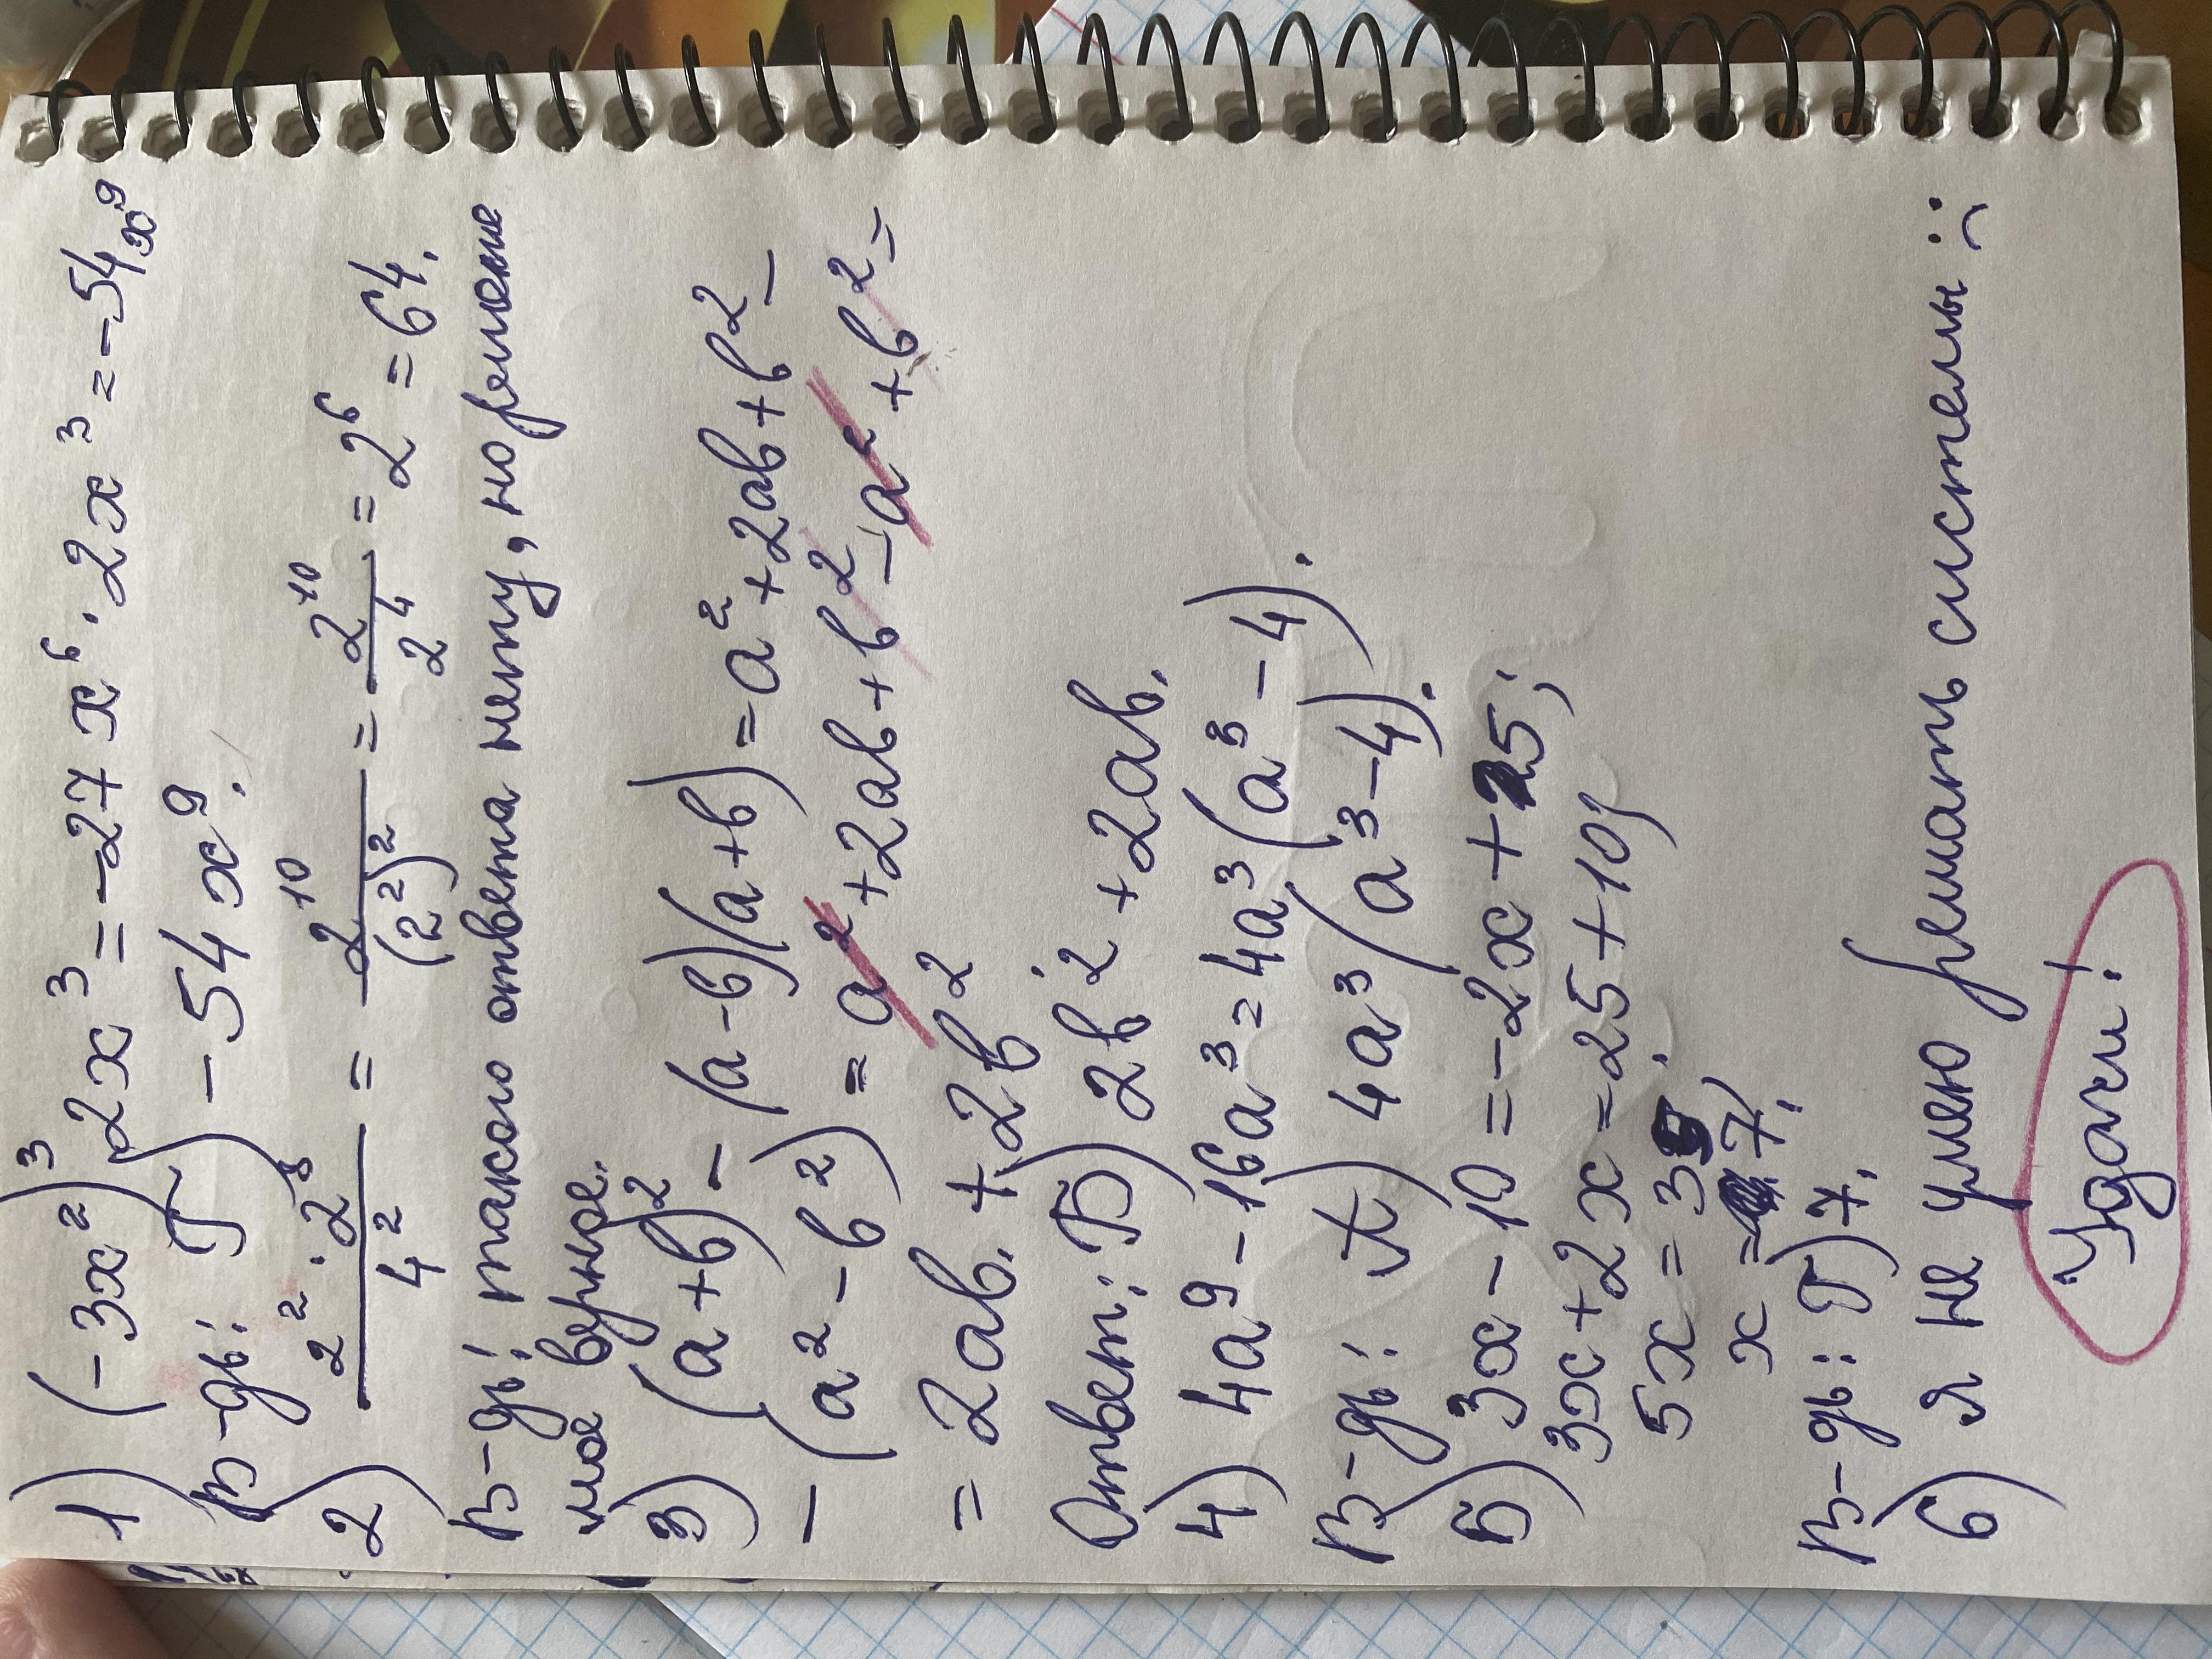 1) (-3x²)³ 2x³ = -27x⁶ · 2x³ = -54x⁹
В-дь: Г) -54x⁹.
2) 2² · 2³ / 4² = 2⁺¹⁰ / (2²)² = 2⁺¹⁰ / 2⁴ = 2⁶ = 64.
В-дь: такого ответа нету, но решение
моё вурное.
3) (a+b)² - (a-b)(a+b) = a² + 2ab + b² -
- (a² - b²) = a² + 2ab + b² - a² + b² =
= 2ab. + 2b²
Ответ: Б) 2b² + 2ab.
4) 4a⁹ - 16a³ = 4a³(a³ - 4)
В-дь: А) 4a³(a³ - 4).
5) 3x - 10 = -2x + 25;
3x + 2x = 25 + 10;
5x = 35;
x = 7.
В-дь: Г) 7.
6) я не умею решать системы :(
Удачи!